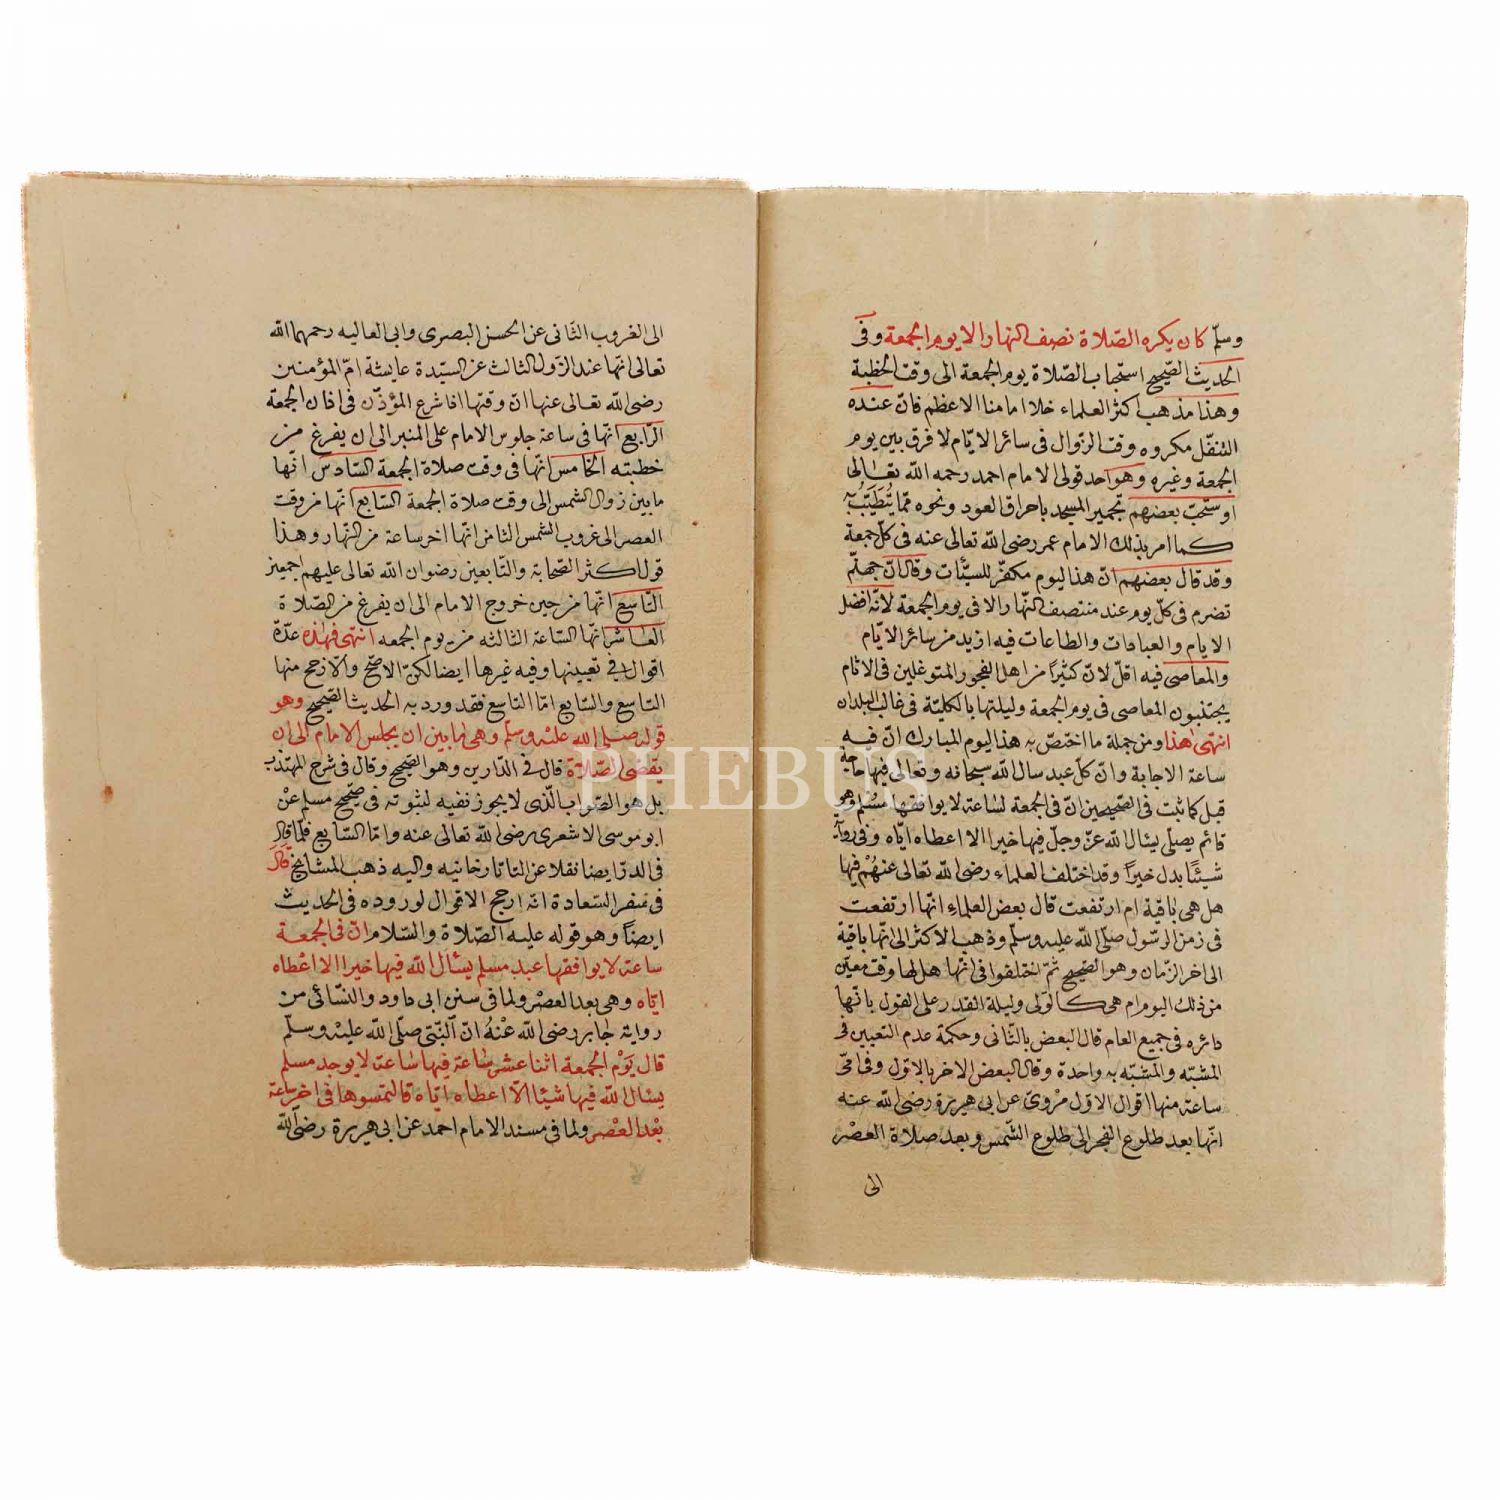 وسلّم كان يكره الصّلاة نصف النهار الا يوم الجمعة وفى
الحديث الصّحيح استجباب الصّلاة يوم الجمعة الى وقت الخطبة
وهذا مذهب اكثر العلماء خلا امامنا الاعظم فانّ عنده
التنفّل مكروه وقت الزوال فى سائر الايّام لا فرق بين يوم
الجمعة وغيره وهو احد قولى الامام احمد رحمه الله تعالى
او ستحبّ بعضهم تجمير المسجد باحراق العود ونحوه ممّا يُتطيّب به
كما امر بذلك الامام عمر رضى الله تعالى عنه فى كلّ جمعة
وقد قال بعضهم انّ هذا اليوم مكفّر للسيّئات وقال انّ جهنّم
تضرم فى كلّ يوم عند منتصف النّهار الا فى يوم الجمعة لانّه افضل
الايام والعبادات والطاعات فيه ازيد من سائر الايّام
والمعاصى فيه اقلّ لانّ كثيرًا من اهل الفجور المتوغلين فى الاثام
يجتنبون المعاصى فى يوم الجمعة وليلتها بالكليّة فى غالب البلدان
انتهى هذا ومن جملة ما اختصّ به هذا اليوم المبارك انّ فيه
ساعة الاجابة وانّ كلّ عبد سال الله سبحانه وتعالى فيها حاجة
قبل كما ثبت فى الصّحيحين انّ فى الجمعة لساعة لا يوافقها مسلم وهو
قائم يصلّى يسئال الله عزّ وجلّ فيها خيرا الا اعطاه ايّاه وفى رواية
شيئًا بدل خيرًا وقد اختلف العلماء رضى الله تعالى عنهُمْ فيها
هل هى باقية ام ارتفعت قال بعض العلماء انّها ارتفعت
فى زمن الرّسول صلّى الله عليه وسلّم وذهب الاكثر الى انّها باقية
الى اخر الزّمان وهو الصّحيح ثمّ اختلفوا فى انّها هل لها وقت معيّن
من ذلك اليوم ام هى كالوّلى وليلة القدر على القول بانّها
دائره فى جميع العام قال البعض بالثّانى وحكمة عدم التعيين فى
المشبّه والمشبّه به واحدة وقال البعض الاخر بالاوّل وفى اىّ
ساعة منها اقوال الاوّل مرْوىّ عن ابى هريرة رضى الله عنه
انّها بعد طلوع الفجر الى طلوع الشّمس وبعد صلاة العصْر
الى
الى الغروب الثّانى عن الحسن البصرى وابى العاليه رحمهما الله
تعالى انّها عند الزّوال الثالث عن السيّدة عايشة امّ المؤمنين
رضى الله تعالى عنها انّ وقتها اذا شرع المؤذّن فى اذان الجمعة
الرّابع انّها فى ساعة جلوس الامام على المنبر الى ان يفرغ من
خطبته الخامس انّها فى وقت صلاة الجمعة السّادس انّها
ما بين زوال الشمس الى وقت صلاة الجمعة السّابع انّها من وقت
العصر الى غروب الشمس الثّامن انّها اخر ساعة من النّهار وهذا
قول اكثر الصّحابة والتّابعين رضوان الله تعالى عليهم اجمعين
التّاسع انّها من حين خروج الامام الى ان يفرغ من الصّلاة
العاشر انّها السّاعة الثالثه من يوم الجمعه انتهى فهذه عدّة
اقوال فى تعيينها وفيه غيرها ايضا لكنّ الاصّح والارجح منها
التاسع والسّابع امّا التاسع فقد ورد به الحديث الصّحيح وهو
قوله صلى الله عليه وسلّم وهى ما بين ان يجلس الامام الى ان
يقضى الصّلاة قال فى الدّارين وهو الصّحيح وقال فى شرح المهذب
بل هو الصّواب الّذى لا يجوز نفيه لثبوته فى صحيح مسلم عنْ
ابو موسى الاشعرى رضى الله تعالى عنه وامّا السّابع فلما قال
فى الدرّ ايضا نقلا عن التاتارخانيه واليه ذهب المشايخ قال
فى سفر السّعادة انّه ارجح الاقوال لوروده فى الحديث
ايضاً وهو قوله عليه الصّلاة والسّلام انّ فى الجمعة
ساعة لا يوافقها عبد مسلم يسئال الله فيها خيرا الا اعْطاه
ايّاه وهى بعد العصْر ولما فى سنن ابى داود والنّسائى من
رواية جابر رضى الله عنْهُ انّ النّبىّ صلّى الله عليْه وسلّم
قال يَوْم الجمعة اثنا عشر ساعة فيها ساعة لا يوجد مسلم
يسئال الله فيها شيئا الّا اعطاه ايّاه فالتمسوها فى اخر ساعة
بعْد العصْر ولما فى مسند الامام احمد عن ابى هريرة رضى الله